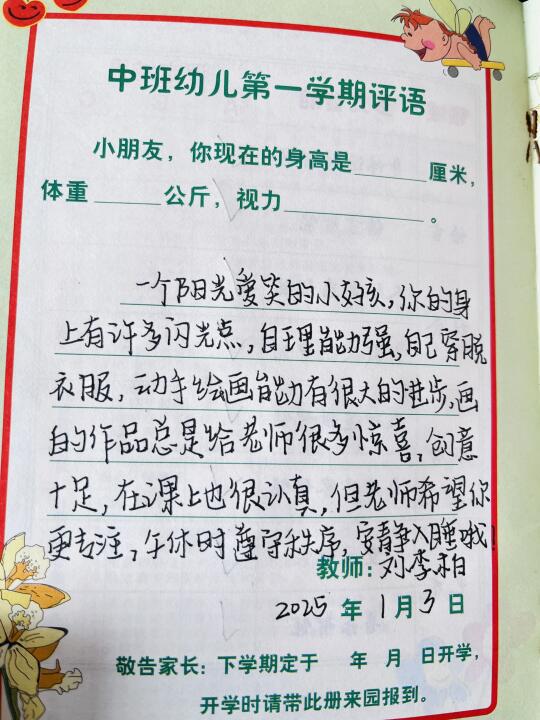 中班幼儿第一学期评语
小朋友，你现在的身高是______厘米，
体重______公斤，视力____________。
一个阳光爱笑的小女孩，你的身
上有许多闪光点，自理能力强，自己穿脱
衣服，动手绘画能力有很大的进步，画
的作品总是给老师很多惊喜，创意
十足，在课上也很认真，但老师希望你
更专注，午休时遵守秩序，安静入睡哦！
教师：刘李柏
2025 年 1 月 3 日
敬告家长：下学期定于 年 月 日开学，
开学时请带此册来园报到。